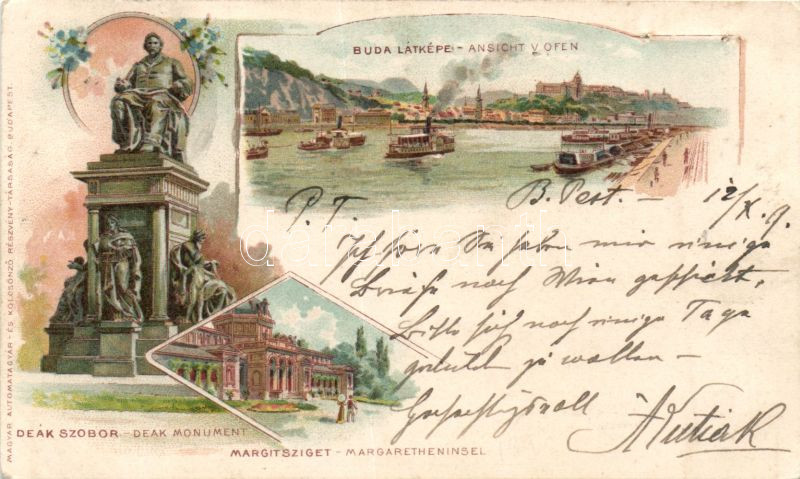 BUDA LÁTKÉPE - ANSICHT V. OFEN
P. T.
B. Pest. - 12/X. 9.
Ich höre Sie haben mir einige
Briefe nach Wien geschickt,
Bitte sich noch einige Tage
geduldet zu wollen -
Hochachtungsvoll
DEÁK SZOBOR - DEAK MONUMENT
MARGITSZIGET - MARGARETHENINSEL
MAGYAR AUTOMATAGYÁR - ÉS KÖLCSÖNZŐ RÉSZVÉNY-TÁRSASÁG, BUDAPEST.